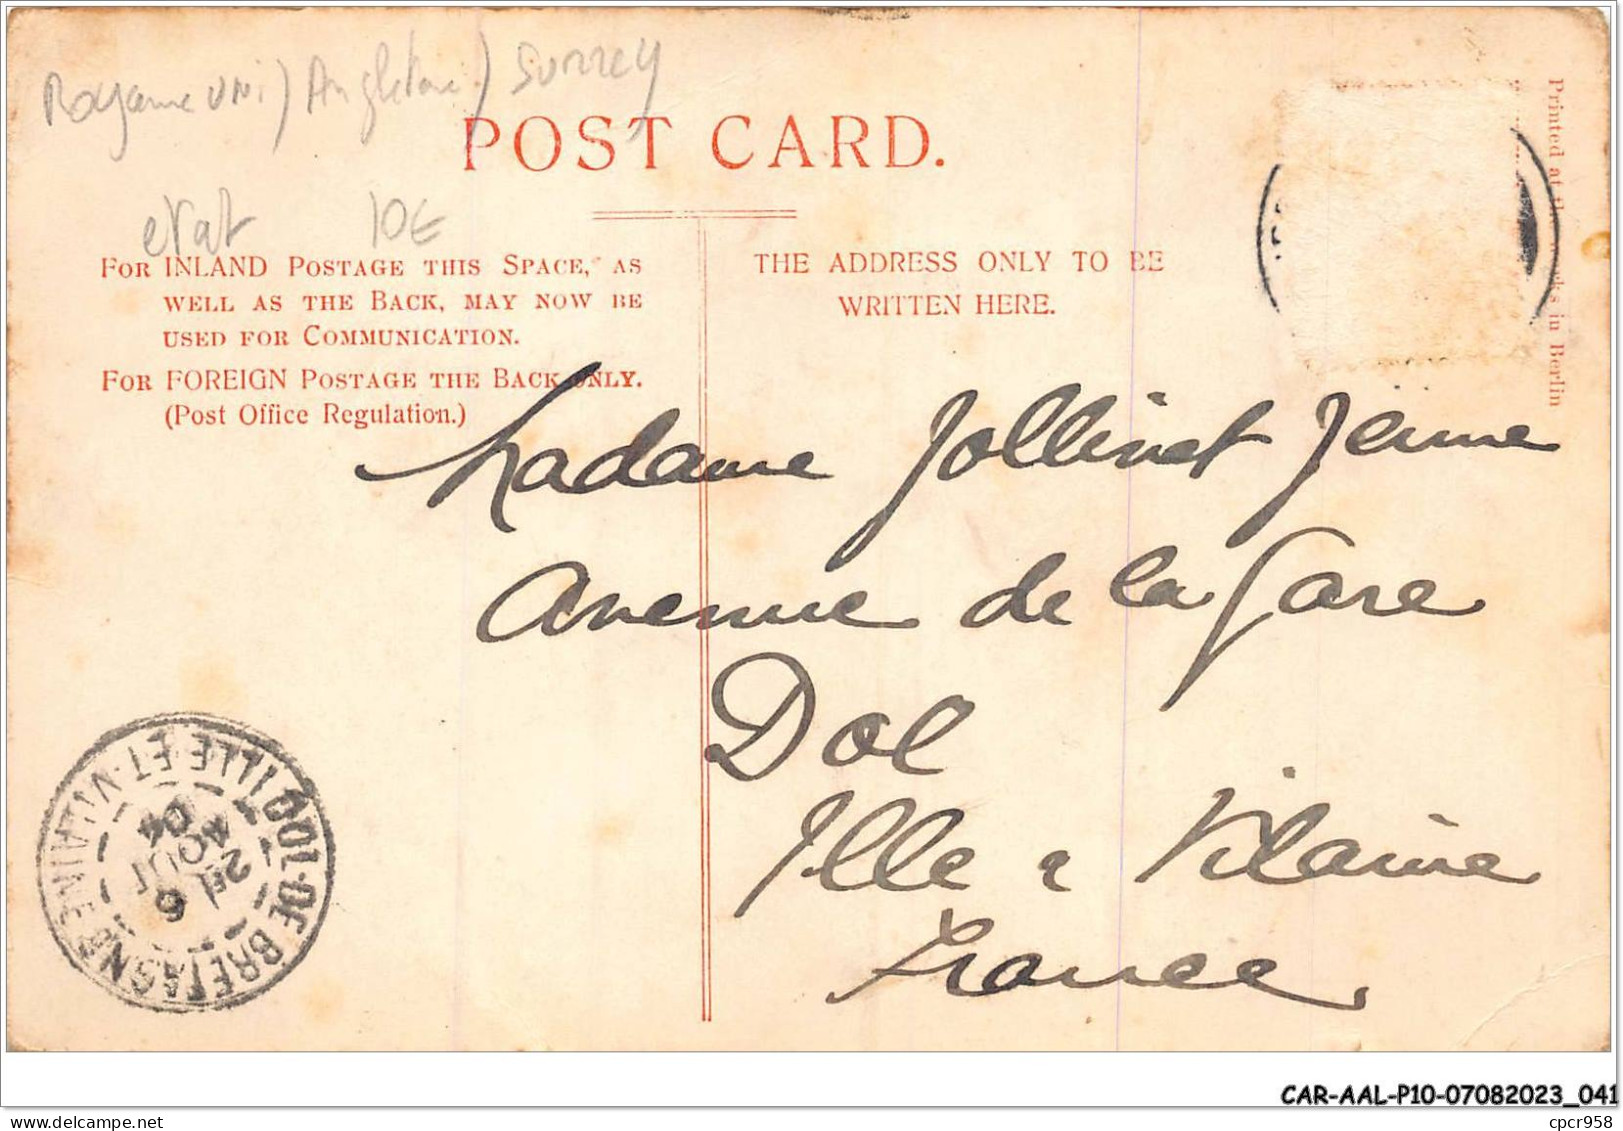 Royaume Uni) Angleterre) Surrey
POST CARD.
etat 10€
FOR INLAND POSTAGE THIS SPACE, AS
WELL AS THE BACK, MAY NOW BE
USED FOR COMMUNICATION.
FOR FOREIGN POSTAGE THE BACK ONLY.
(Post Office Regulation.)
THE ADDRESS ONLY TO BE
WRITTEN HERE.
Printed at the Works in Berlin
Madame Jollivet Jeune
Avenue de la Gare
Dol
Ille & Vilaine
France
DOL-DE-BRETAGNE
ILLE-ET-VILAINE
6
25
AOUT
04
CAR-AAL-P10-07082023_041
cpcr958